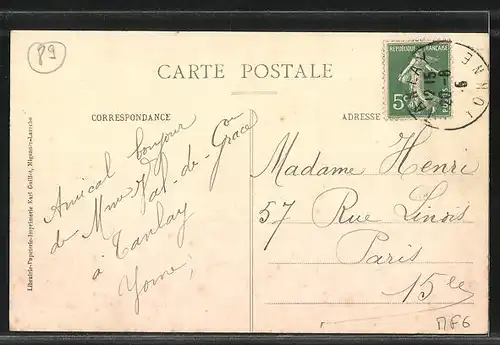 89
CARTE POSTALE
CORRESPONDANCE
ADRESSE
REPUBLIQUE FRANÇAISE
5c
POSTES
TANLAY
12 15
8 5
YONNE
Amical bonjour
de Mme Val-de-Grace
à Tanlay
Yonne
Madame Henri
57 Rue Linois
Paris
15 le
Librairie-Papeterie-Imprimerie Karl Guillot, Migennes-Laroche
MF6